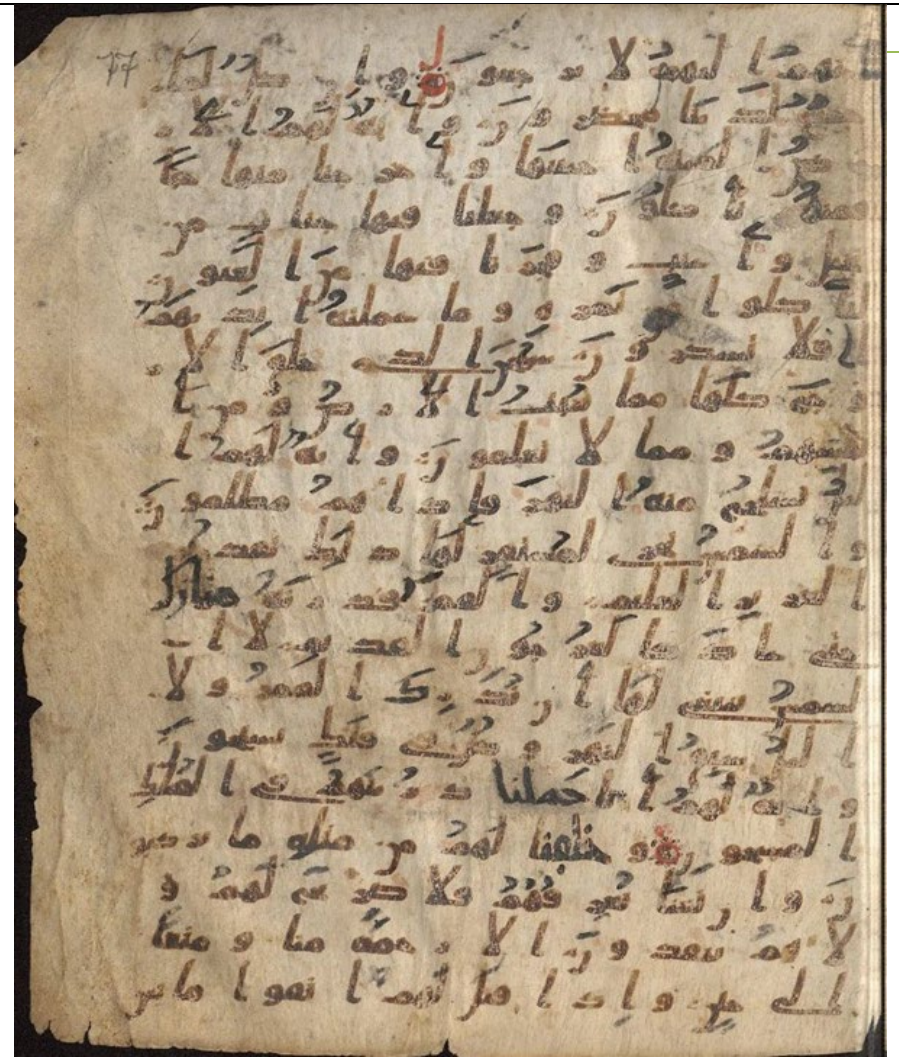 انهم اليهم لا يرجعون وان كل لما
جميع لدينا محضرون واية لهم الا
رض الميتة احيينها واخرجنا منها حبا
فمنه ياكلون وجعلنا فيها جنت من
نخيل واعنب وفجرنا فيها من العيون
لياكلوا من ثمره وما عملته ايديهم
افلا يشكرون سبحن الذي خلق الا
زوج كلها مما تنبت الارض ومن ا
نفسهم ومما لا يعلمون واية لهم ا
ليل نسلخ منه النهر فاذا هم مظلمون
والشمس تجري لمستقر لها ذلك تقدير
العزيز العليم والقمر قدرنه منازل
حتى عاد كالعرجون القديم لا ا
لشمس ينبغي لها ان تدرك القمر ولا
اليل سابق النهر وكل في فلك يسبحون
واية لهم انا حملنا ذريتهم في الفلك
المشحون وخلقنا لهم من مثله ما يركبو
ن وان نشا نغرقهم فلا صريخ لهم و
لا هم ينقذون الا رحمة منا ومتعا
الى حين واذا قيل لهم اتقوا ما بين